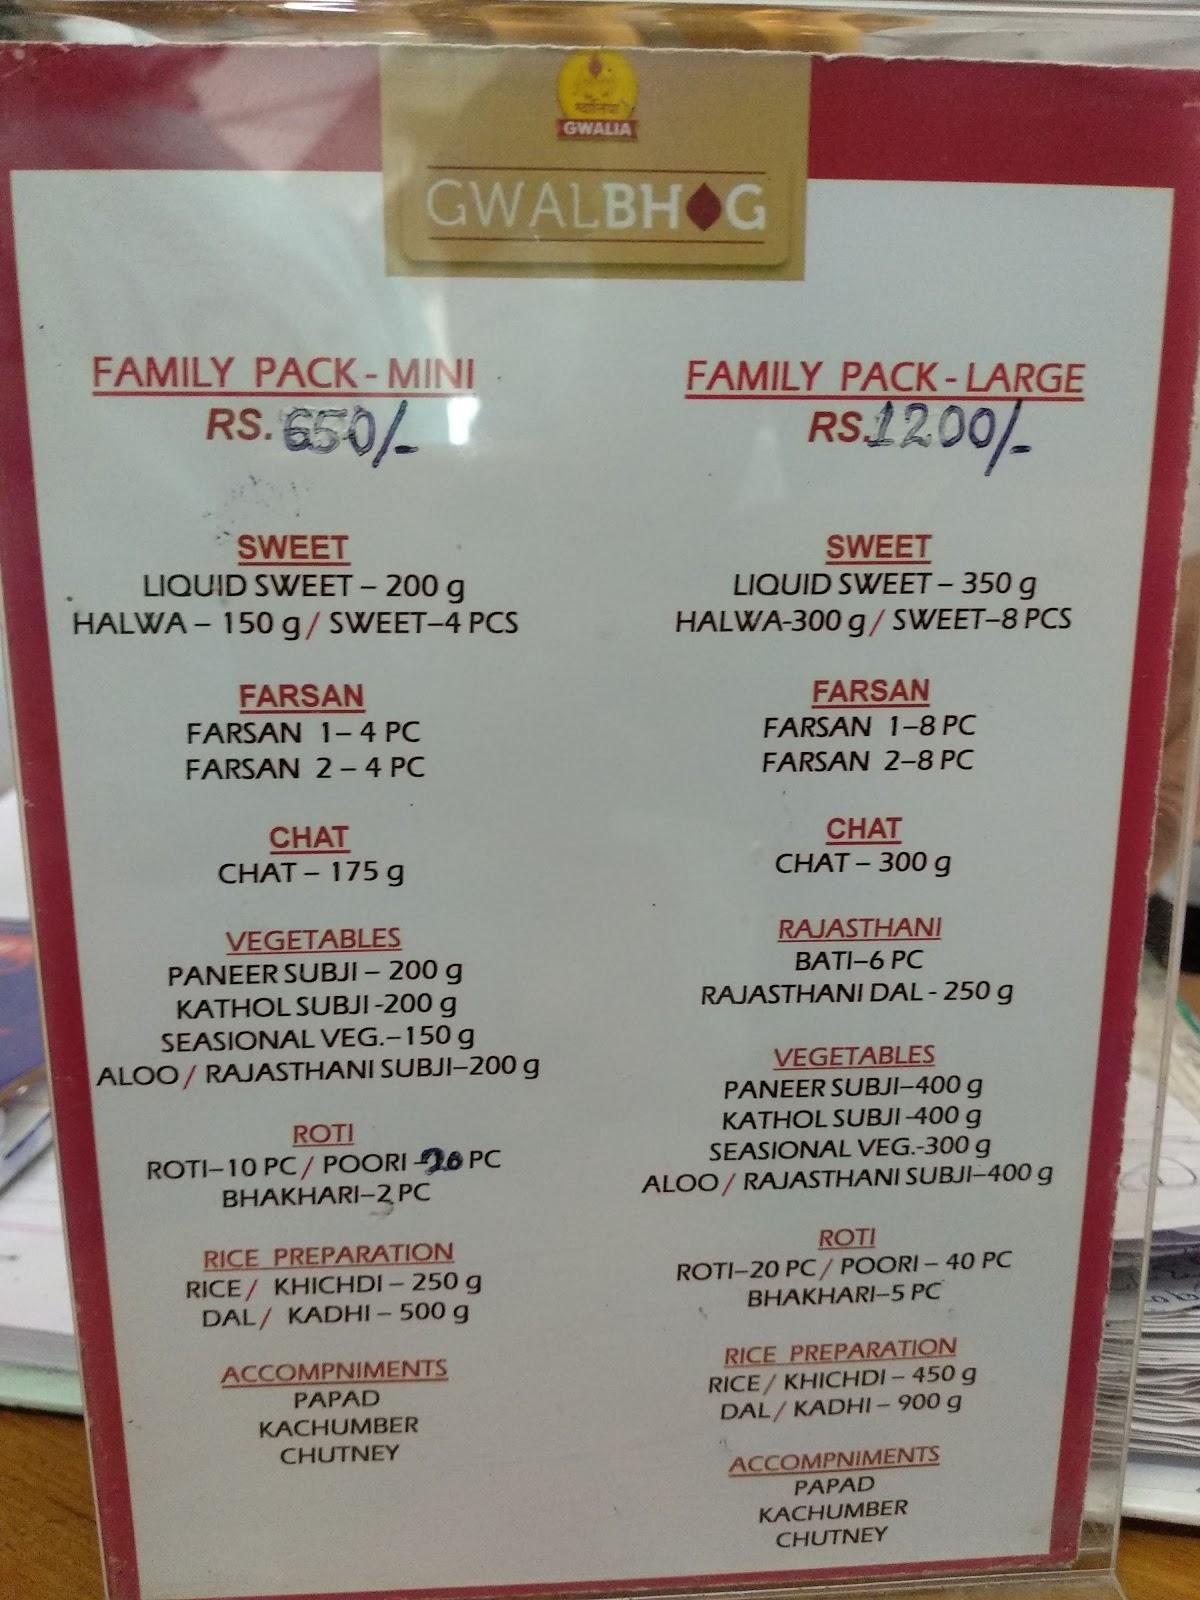 ग्वालिया
GWALIA
GWALBHOG
FAMILY PACK - MINI
RS. 650/-
SWEET
LIQUID SWEET – 200 g
HALWA – 150 g / SWEET–4 PCS
FARSAN
FARSAN 1– 4 PC
FARSAN 2 – 4 PC
CHAT
CHAT – 175 g
VEGETABLES
PANEER SUBJI – 200 g
KATHOL SUBJI -200 g
SEASIONAL VEG.–150 g
ALOO / RAJASTHANI SUBJI–200 g
ROTI
ROTI–10 PC / POORI -20 PC
BHAKHARI–2 PC
RICE PREPARATION
RICE / KHICHDI – 250 g
DAL / KADHI – 500 g
ACCOMPNIMENTS
PAPAD
KACHUMBER
CHUTNEY
FAMILY PACK - LARGE
RS.1200/-
SWEET
LIQUID SWEET – 350 g
HALWA-300 g / SWEET–8 PCS
FARSAN
FARSAN 1–8 PC
FARSAN 2–8 PC
CHAT
CHAT – 300 g
RAJASTHANI
BATI–6 PC
RAJASTHANI DAL - 250 g
VEGETABLES
PANEER SUBJI–400 g
KATHOL SUBJI -400 g
SEASIONAL VEG.-300 g
ALOO / RAJASTHANI SUBJI–400 g
ROTI
ROTI–20 PC / POORI – 40 PC
BHAKHARI–5 PC
RICE PREPARATION
RICE / KHICHDI – 450 g
DAL / KADHI – 900 g
ACCOMPNIMENTS
PAPAD
KACHUMBER
CHUTNEY